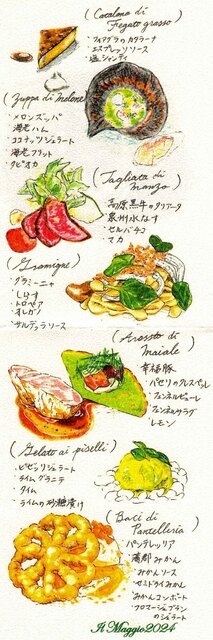 (Catalana di
Fegato grasso)
・フォアグラのカタラーナ
・エスプレッソソース
・塩シャンティ
(Zuppa di melone)
・メロンズッパ
・海老ハム
・ココナッツジェラート
・海老フリット
・タピオカ
(Tagliata di
manzo)
・高原黒牛のタリアータ
・泉州水なす
・セルバチコ
・マカ
(Gramigne)
・グラミーニャ
・しらす
・トロペア
・オレガノ
・サルデッラソース
(Arrosto di
maiale)
豚
・パセリのクレスペッレ
・フェンネルピューレ
・フェンネルサラダ
・レモン
(Gelato ai piselli)
・ピゼッリジェラート
・ライムグラニテ
・タイム
・ライムの砂糖漬け
(Baci di
Pantelleria)
・パンテレッリア
・蒲郡みかん
・みかんソース
・セミドライみかん
・みかんコンポート
・フロマージュブラン
のジェラート
Il Maggio 2024